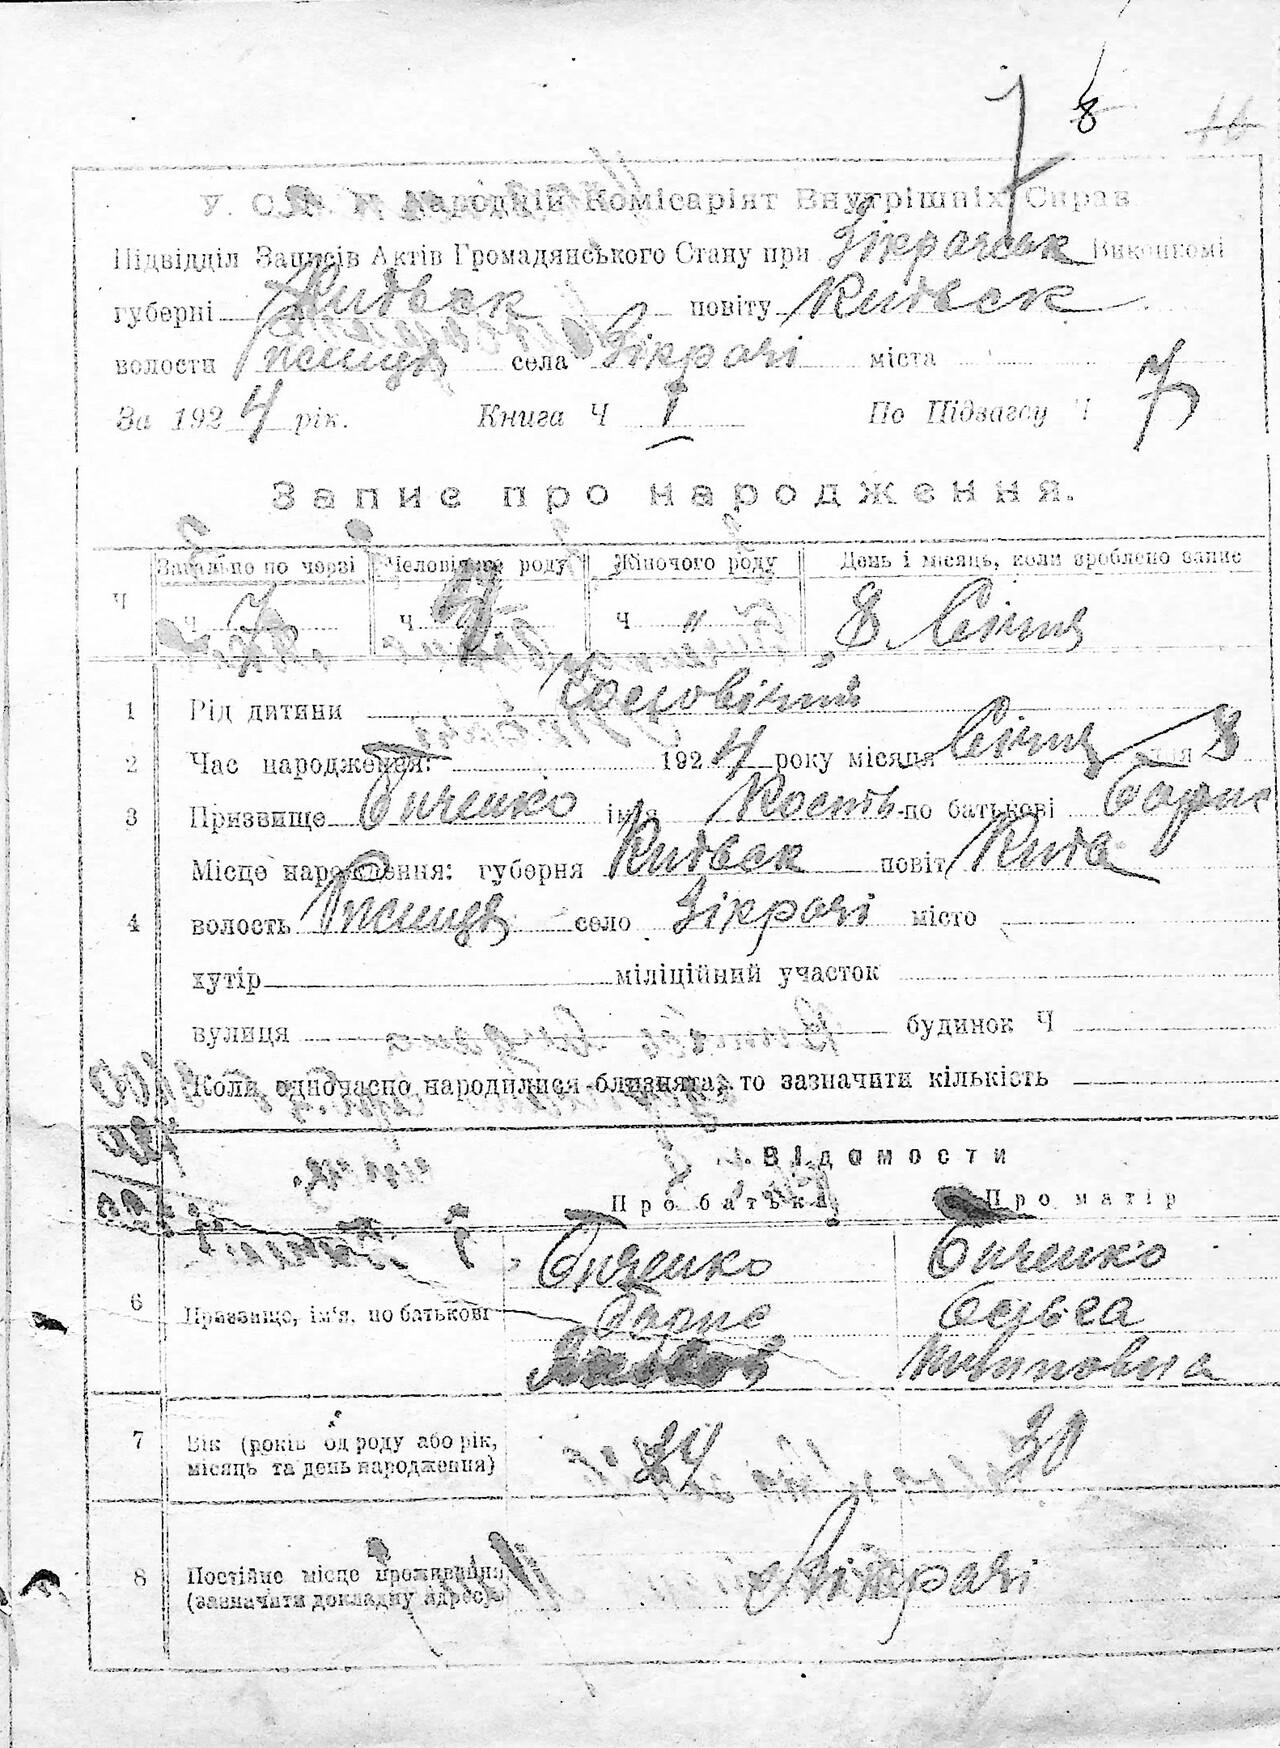 7 8 16
У. С. Р. Р. Народній Комісаріят Внутрішніх Справ
Підвідділ Записів Актів Громадянського Стану при Зікрачськ Виконкомі
губерні Київськ повіту Київськ
волости села Зікрачі міста
За 1924 рік. Книга Ч I По Підзагсу Ч 7
Запис про народження.
Ч Загально по черзі Человічого роду Жіночого роду День і місяць, коли зроблено запис
ч 7 ч ч " 8 Січня
1 Рід дитини Чоловічий
2 Час народження: 1924 року місяця Січня дня 8
3 Призвище Биченко ім'я Кость по батькові Борис
Місце народження: губерня Київськ повіт Київ
4 волость село Зікрачі місто
хутір міліційний участок
вулиця будинок Ч
Коли одночасно народилися близнята, то зазначити кількість
Відомости
Про батька Про матір
Биченко Биченко
6 Призвище, ім'я, по батькові Борис Ольга
7 Вік (років од роду або рік, місяць та день народження) 34 30
8 Постійне місце проживання (зазначити докладну адресу) Зікрачі